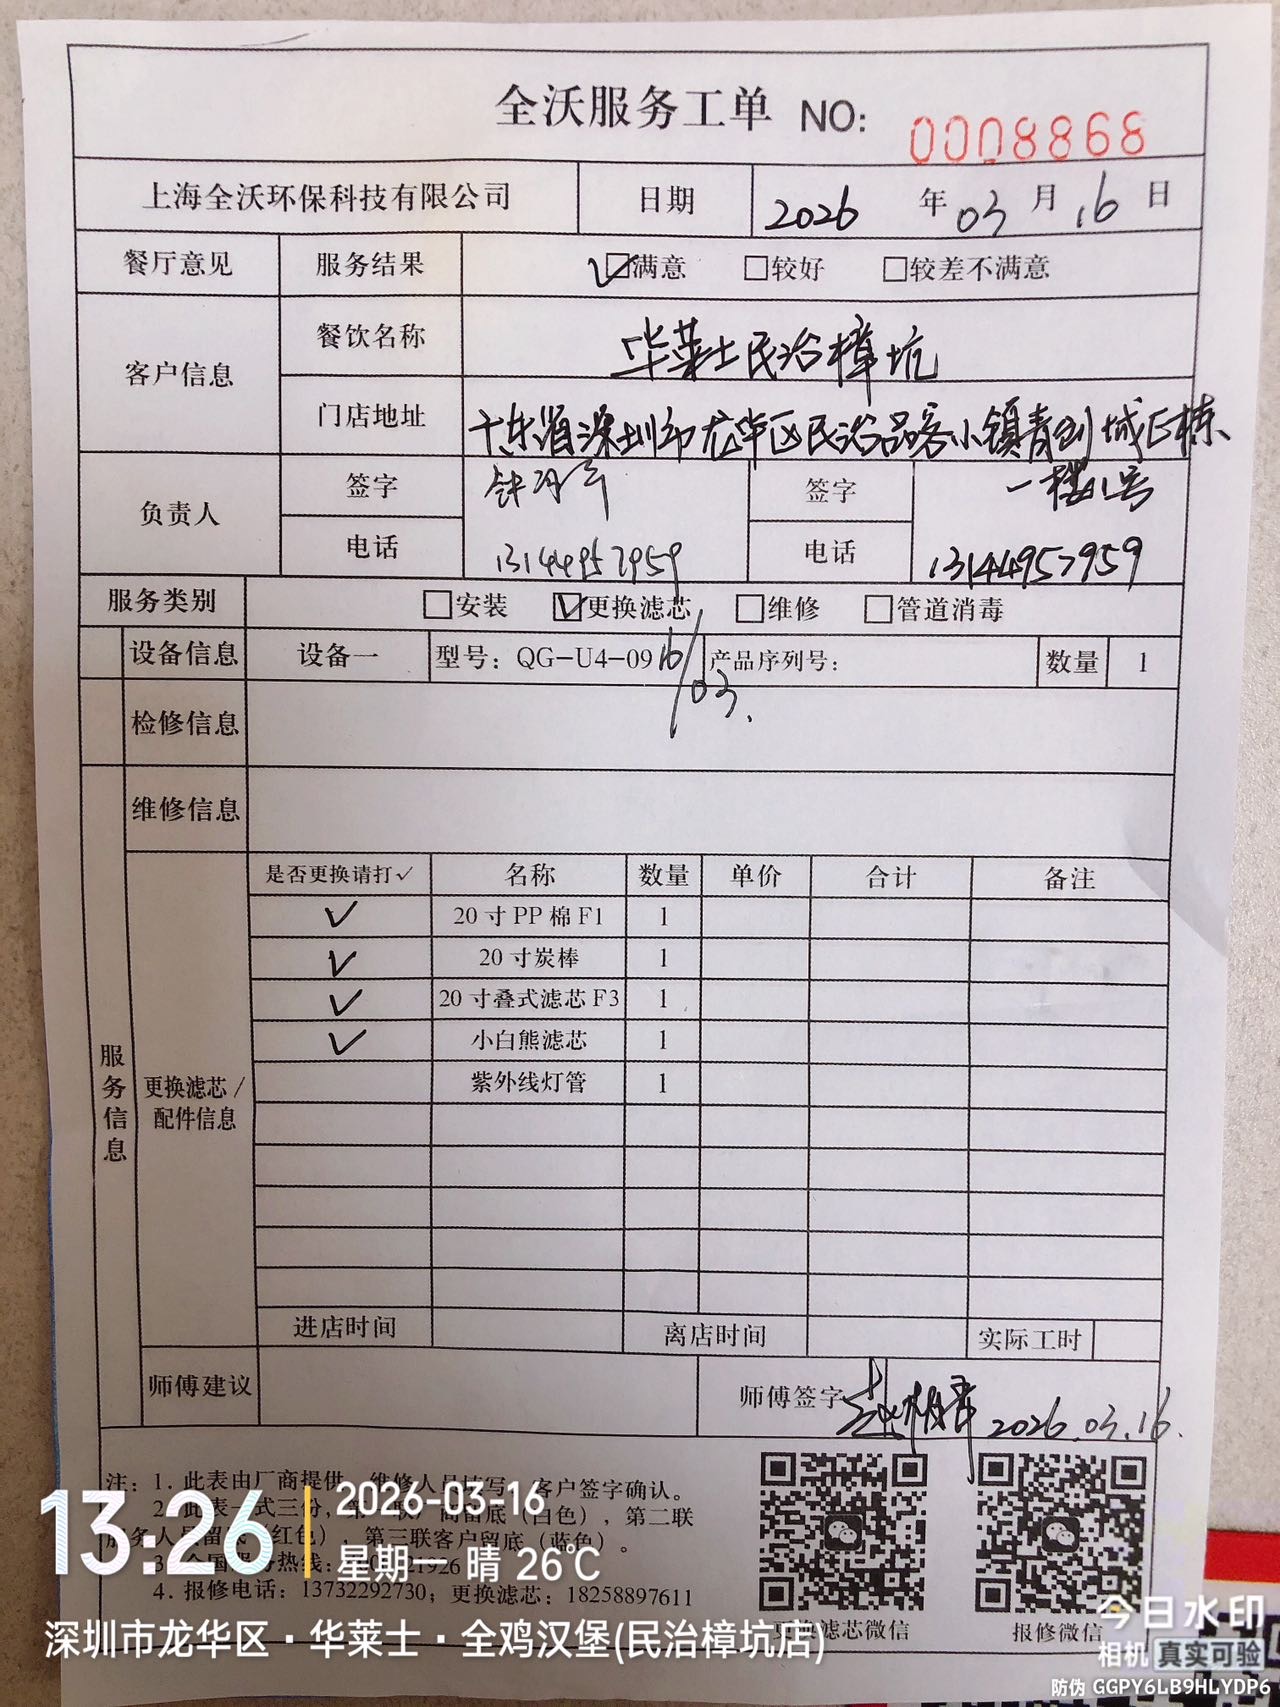 全沃服务工单 NO: 0008868
上海全沃环保科技有限公司 日期 2026 年 03 月 16 日
餐厅意见 服务结果 ☑满意 □较好 □较差不满意
客户信息 餐饮名称 华莱士民治樟坑
门店地址 广东省深圳市龙华区民治品客小镇青创城E栋
一楼 号
负责人 签字 签字
电话 13144957959 电话 13144957959
服务类别 □安装 ☑更换滤芯 □维修 □管道消毒
设备信息 设备一 型号：QG-U4-09 产品序列号： 数量 1
16/03.
检修信息
维修信息
服务信息
更换滤芯/配件信息
是否更换请打✓ 名称 数量 单价 合计 备注
✓ 20寸PP棉F1 1
✓ 20寸炭棒 1
✓ 20寸叠式滤芯F3 1
✓ 小白熊滤芯 1
紫外线灯管 1
进店时间 离店时间 实际工时
师傅建议 师傅签字 2026.03.16.
注：1. 此表由厂商提供，维修人员填写，客户签字确认。
2. 此表一式三份，第一联厂商留底（白色），第二联
服务人员留底（红色），第三联客户留底（蓝色）。
3. 全国服务热线： 21926
4. 报修电话：13732292730；更换滤芯：18258897611
更换滤芯微信 报修微信
13:26 2026-03-16
星期一 晴 26℃
深圳市龙华区·华莱士·全鸡汉堡(民治樟坑店)
今日水印
相机 真实可验
防伪 GGPY6LB9HLYDP6